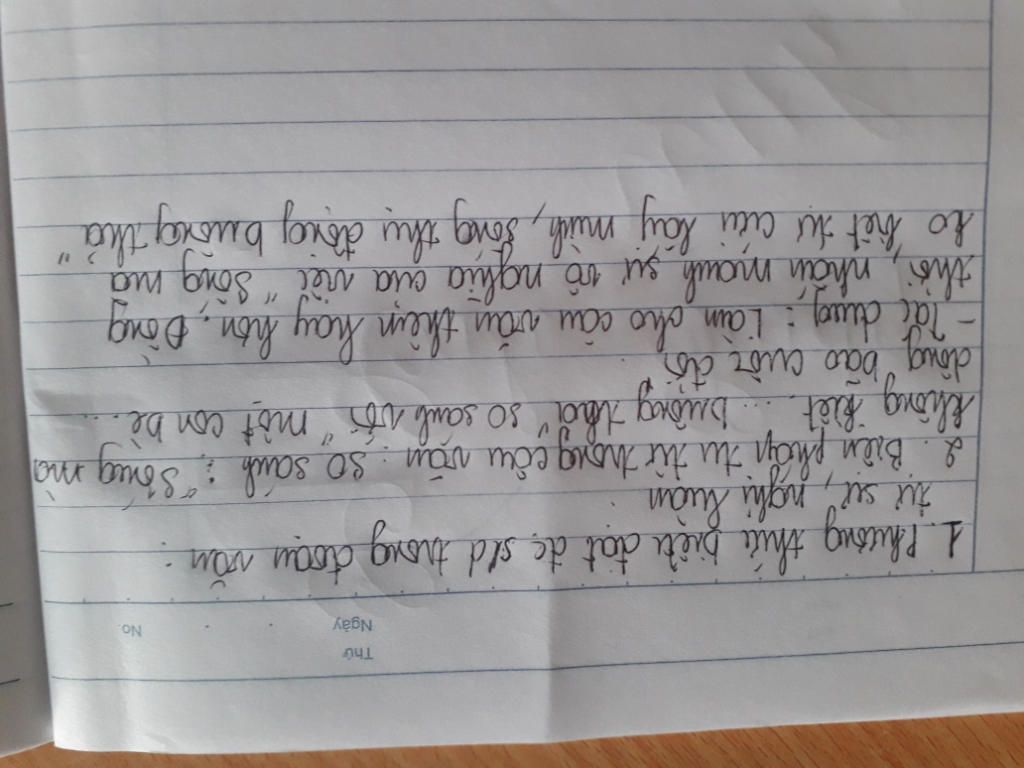 Thứ
Ngày
No.
1. Phương thức biểu đạt đc sd trong đoạn văn :
tự sự, nghị luận
2. Biện pháp tu từ trong câu văn : so sánh : "Sống mà
không biết ... buông thả" so sánh với "một con bè ...
dông bão cuộc đời
- Tác dụng : Làm cho câu văn thêm hay hơn. Đồng
thời, nhấn mạnh sự vô nghĩa của việc "sống mà
ko biết tự cứu lấy mình, sống thụ động buông thả"